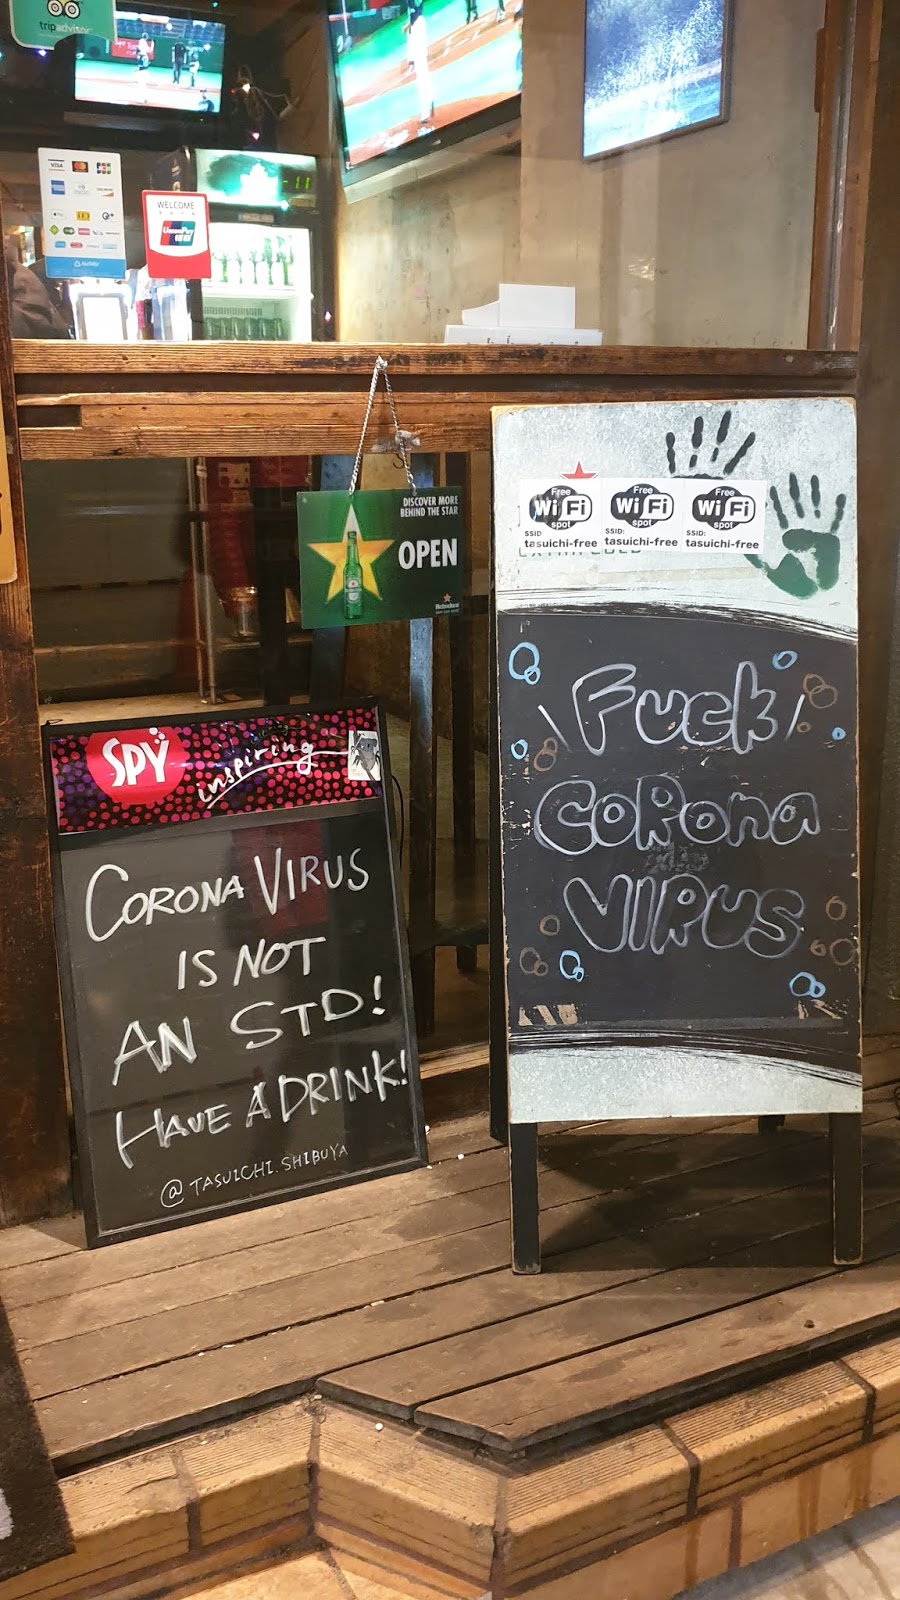 tripadvisor
VISA
JCB
WELCOME
UnionPay
DISCOVER MORE
BEHIND THE STAR
OPEN
Heineken
Free
Wi Fi
spot
SSID:
tasuichi-free
Free
Wi Fi
spot
SSID:
tasuichi-free
Free
Wi Fi
spot
SSID:
tasuichi-free
EXTRA COLD
\ Fuck /
CORona
VIRUS
SPY
inspiring
CORONA VIRUS
IS NOT
AN STD!
HAVE A DRINK!
@TASUICHI.SHIBUYA